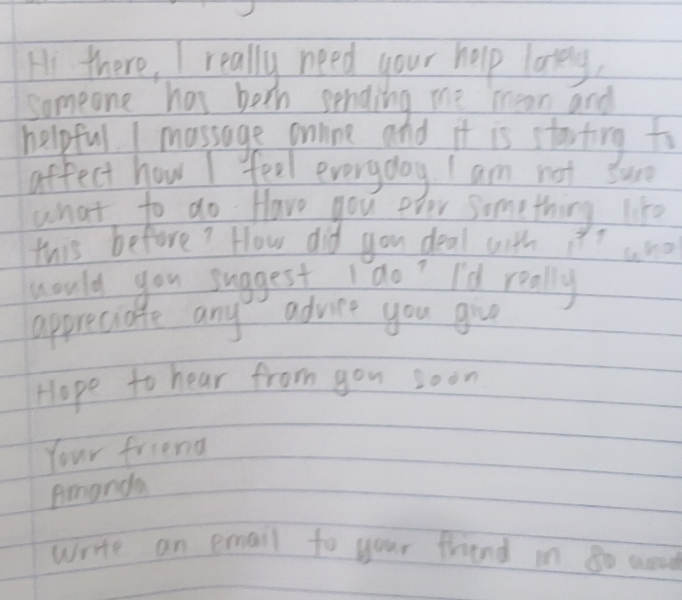 Hi there, I really need your help lately,
someone has been sending me mean and
helpful I massage online and it is starting to
affect how I feel everyday. I am not sure
what to do Have you ever something like
this before? How did you deal with it?
would you suggest I do? I'd really
appreciate any advice you give
Hope to hear from you soon
Your friend
Amanda
Write an email to your friend in 80